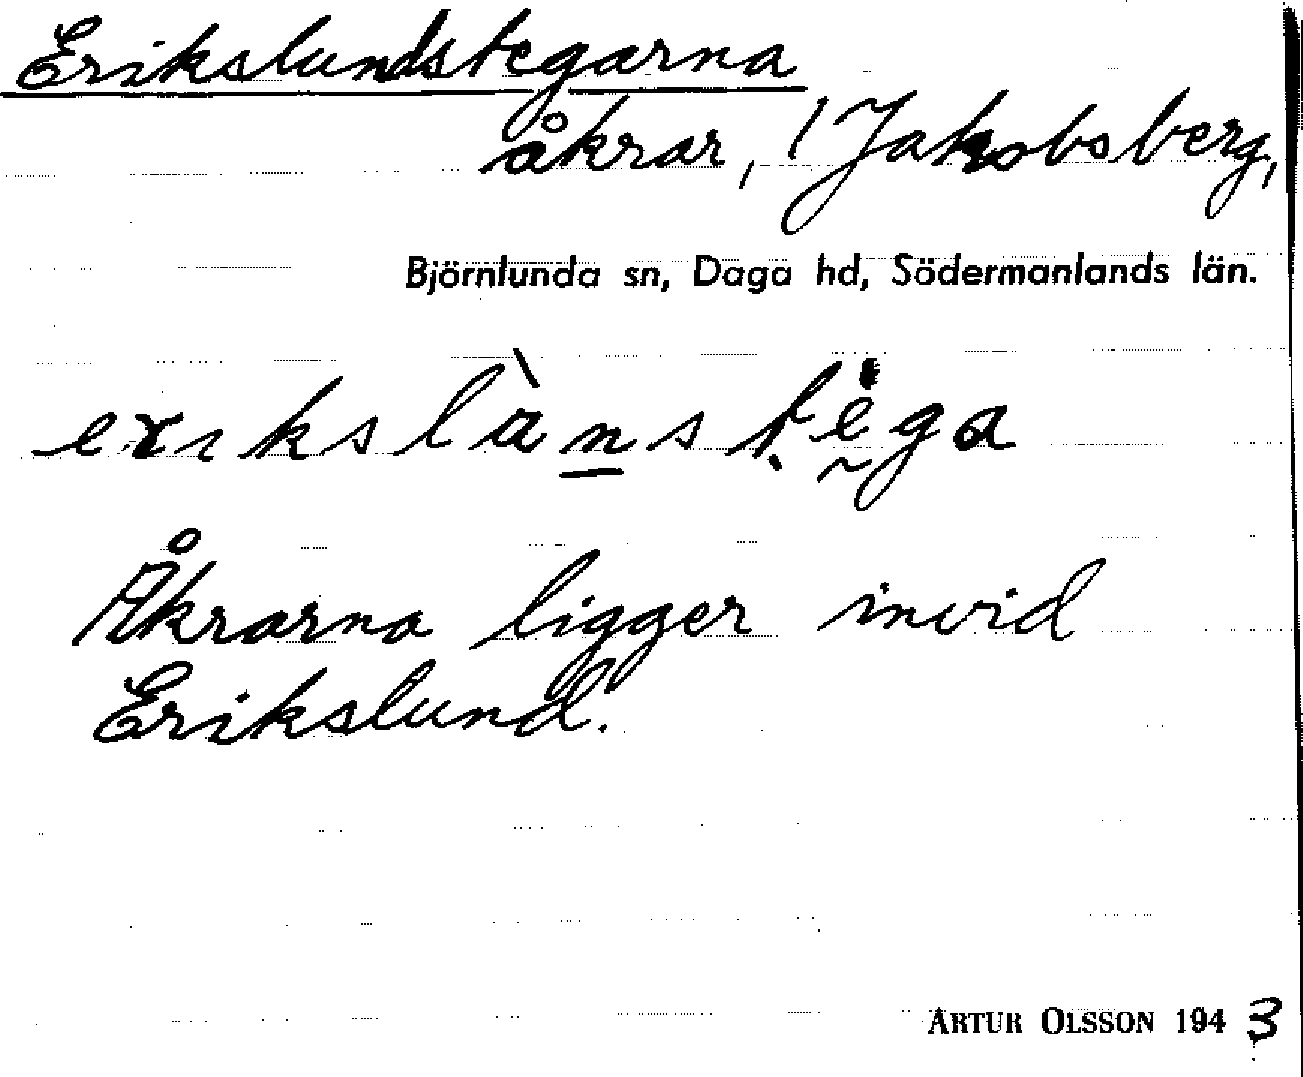 Erikslundstegarna
åkrar, / Jakobsberg,
Björnlunda sn, Daga hd, Södermanlands län.
Åkrarna ligger invid
Erikslund.
ARTUR OLSSON 1943